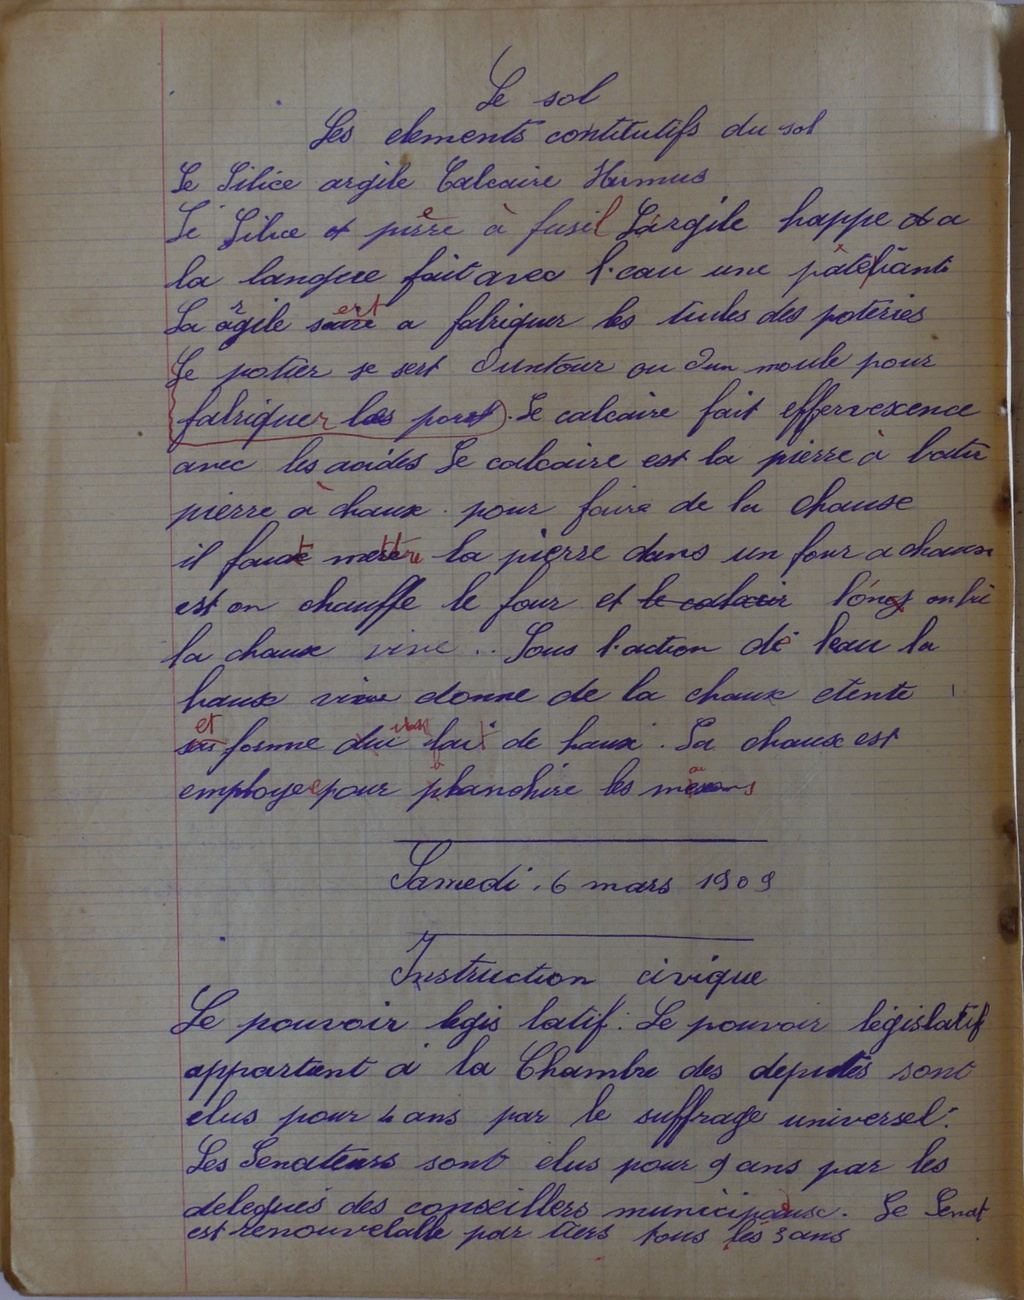 Le sol
Les elements contitutifs du sol
Le Silice argile Calcaire Humus
Le Silice et pière à fusil L'argile happe et a
la langue fait avec l'eau une
La argile sert a fabriquer les tuiles des poteries
Le potier se sert d'un tour ou d'un moule pour
fabriquer les pots. Le calcaire fait effervexence
avec les acides Le calcaire est la pierre à batir
pierre à chaux. pour faire de la chause
il faut mettre la pierre dans un four a chaux
est on chauffe le four et le calcair
la chaux vive .. Sous l'action de l'eau la
haux vive donne de la chaux etente
et forme lai de haux. La chaux est
employee pour planchire les
Samedi. 6 mars 1909
Instruction civique
Le pouvoir legis latif: Le pouvoir législatif
appartient à la Chambre des deputés sont
elus pour 4 ans par le suffrage universel.
Les Senateurs sont elus pour 9 ans par les
delegués des conseillers municipaux. Le Senat
est renouvelable par tiers tous les 3 ans